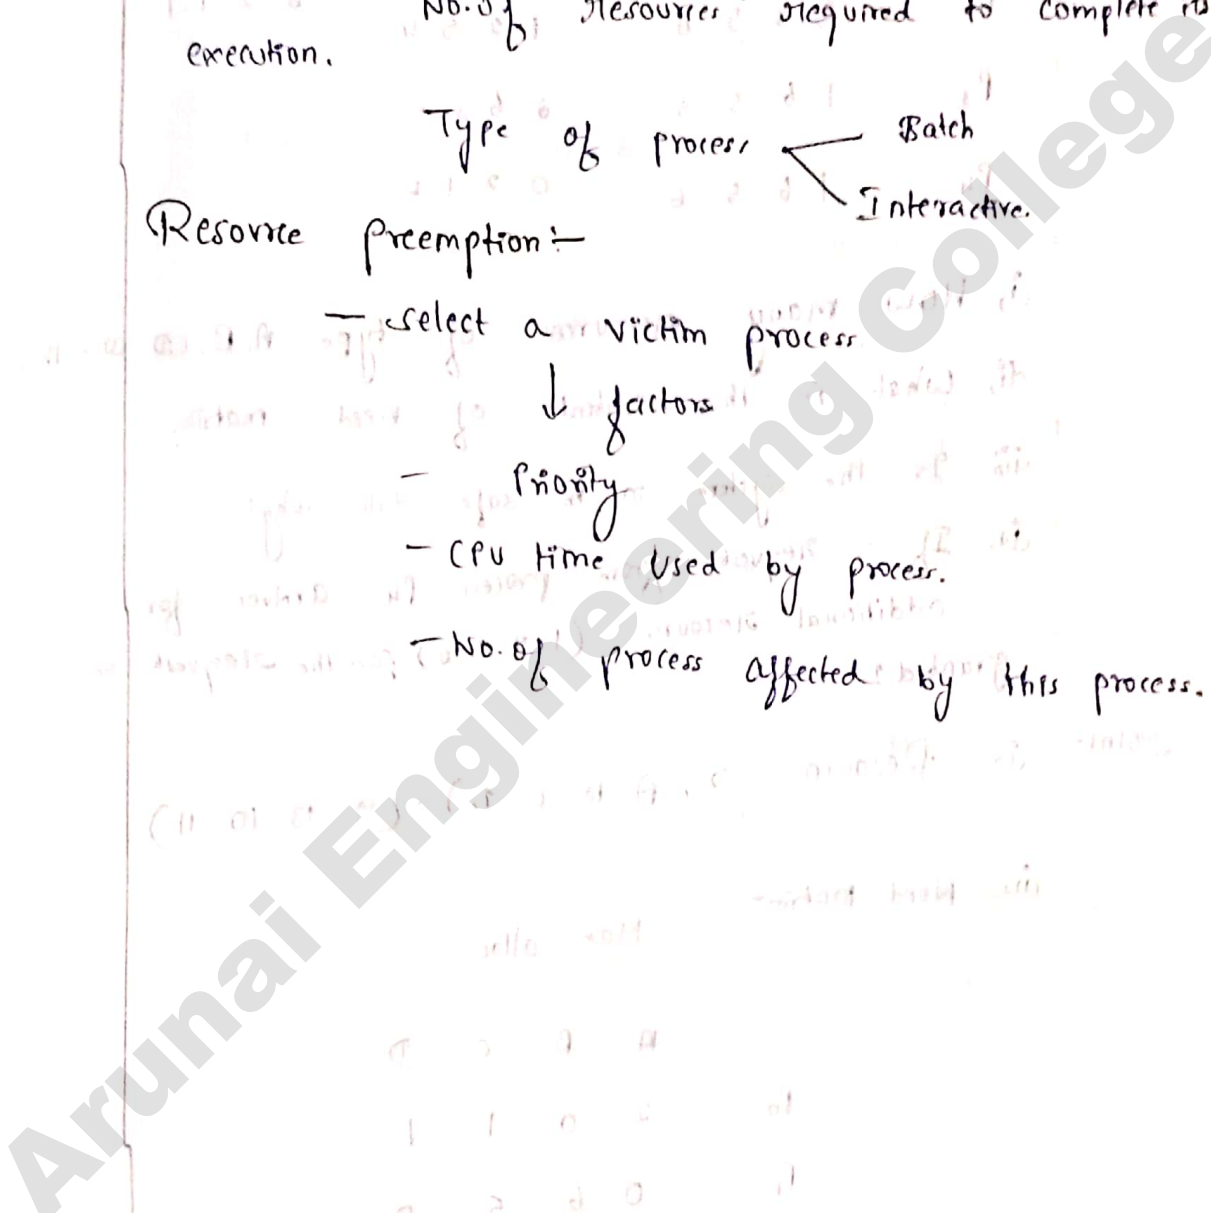 No. of resources required to complete its
execution.
Type of process Batch
Interactive.
Resource preemption:-
- select a victim process
↓ factors
- Priority
- CPU time used by process.
- No. of process affected by this process.
Arunai Engineering College